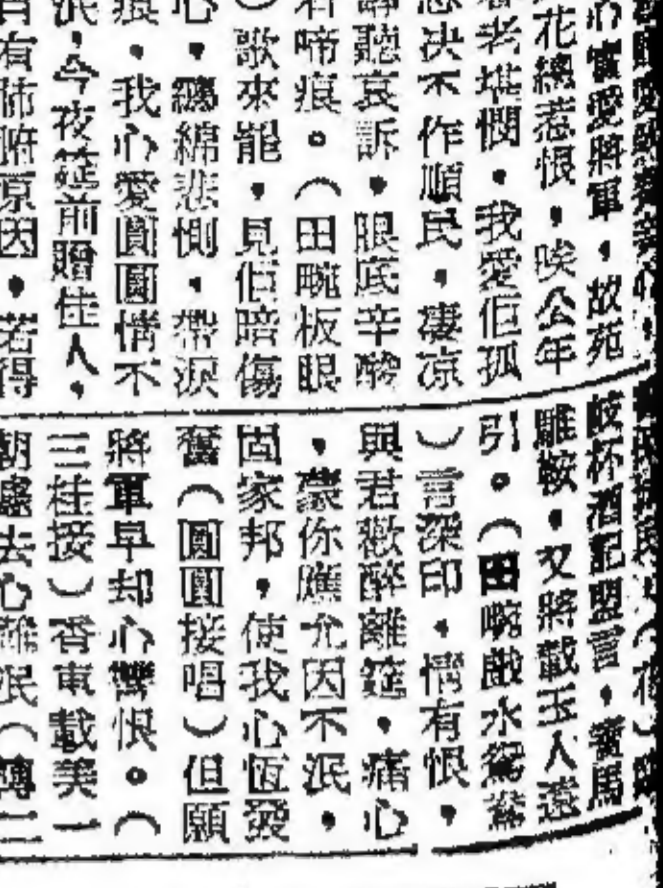 心實愛將軍，故苑
花總惹恨，唉公年
老堪憫，我愛佢孤
決不作順民，凄凉
聽哀訴，眼底辛酸
啼痕。（田畹板眼
）歌來罷，見佢暗傷
心，纏綿悲惻，帶淚
痕，我心愛圓圓情不
泯，今夜筵前贈佳人，
有肺腑原因，若得
杯酒記盟言，
雕鞍，又將載玉人遠
引。（田畹戲水鴛鴦
）言深印，情有恨，
與君歡醉離筵，痛心
，蒙你應允因不泯，
固家邦，使我心恆發
奮（圓圓接唱）但願
將軍早却心聲恨。（
三桂接）香車載美一
朝處去心難泯（轉二